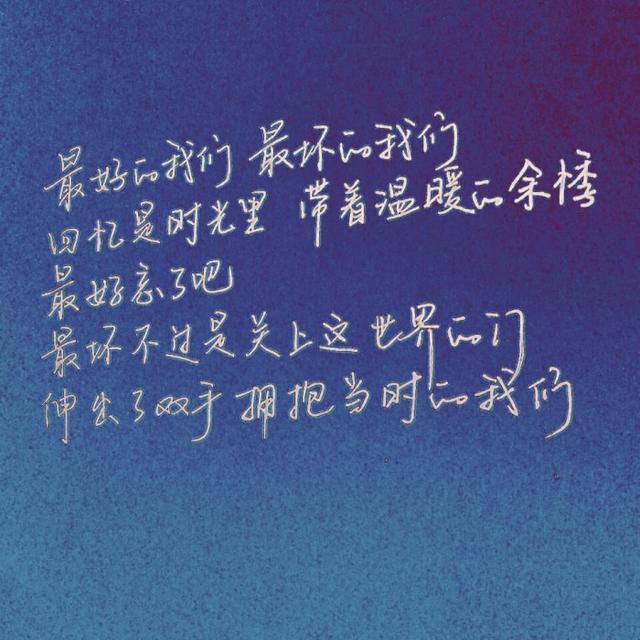 最好的我们 最坏的我们
回忆是时光里 带着温暖的余悸
最好忘了吧
最坏不过是关上这世界的门
伸出了双手拥抱当时的我们